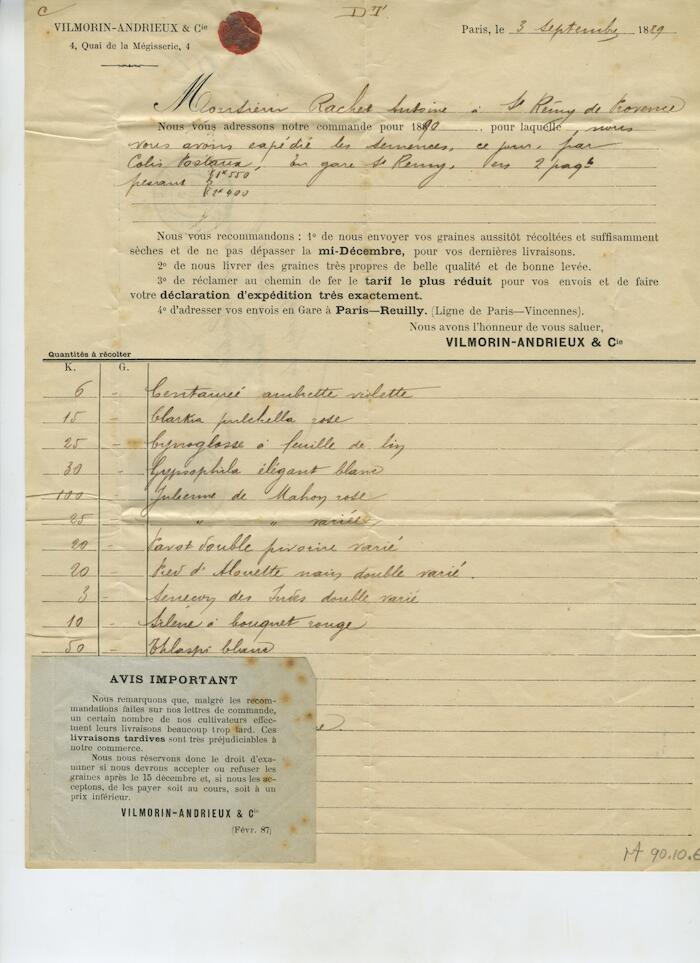 C
DT
VILMORIN-ANDRIEUX & Cie
4, Quai de la Mégisserie, 4
Paris, le 3 Septembre 1889
Monsieur Rachet Antoine à St Rémy de Provence
Nous vous adressons notre commande pour 1890 pour laquelle, nous
vous avons expédié les semences, ce jour, par
Colis Postaux, En gare St Remy, en 2 paqts
pesant 1er 550
2e 400
Nous vous recommandons : 1º de nous envoyer vos graines aussitôt récoltées et suffisamment
sèches et de ne pas dépasser la mi-Décembre, pour vos dernières livraisons.
2º de nous livrer des graines très propres de belle qualité et de bonne levée.
3º de réclamer au chemin de fer le tarif le plus réduit pour vos envois et de faire
votre déclaration d'expédition très exactement.
4º d'adresser vos envois en Gare à Paris—Reuilly. (Ligne de Paris—Vincennes).
Nous avons l'honneur de vous saluer,
VILMORIN-ANDRIEUX & Cie
Quantités à récolter
K. G.
6 - Centaureé ambrette violette
15 - Clarkia pulchella rose
25 - Cynoglosse à feuille de lin
30 - Gypsophila élégant blanc
100 - Julienne de Mahon rose
25 - " " variée
20 - Pavot double pivoine varié
20 - Pied d'Alouette nain double varié.
3 - Seneçon des Indes double varié
10 - Silène à bouquet rouge
50 - Thlaspi blanc
AVIS IMPORTANT
Nous remarquons que, malgré les recom-
mandations faites sur nos lettres de commande,
un certain nombre de nos cultivateurs effec-
tuent leurs livraisons beaucoup trop tard. Ces
livraisons tardives sont très préjudiciables à
notre commerce.
Nous nous réservons donc le droit d'exa-
miner si nous devrons accepter ou refuser les
graines après le 15 décembre et, si nous les ac-
ceptons, de les payer soit au cours, soit à un
prix inférieur.
VILMORIN-ANDRIEUX & Cie
(Févr. 87)
M 90.10.6